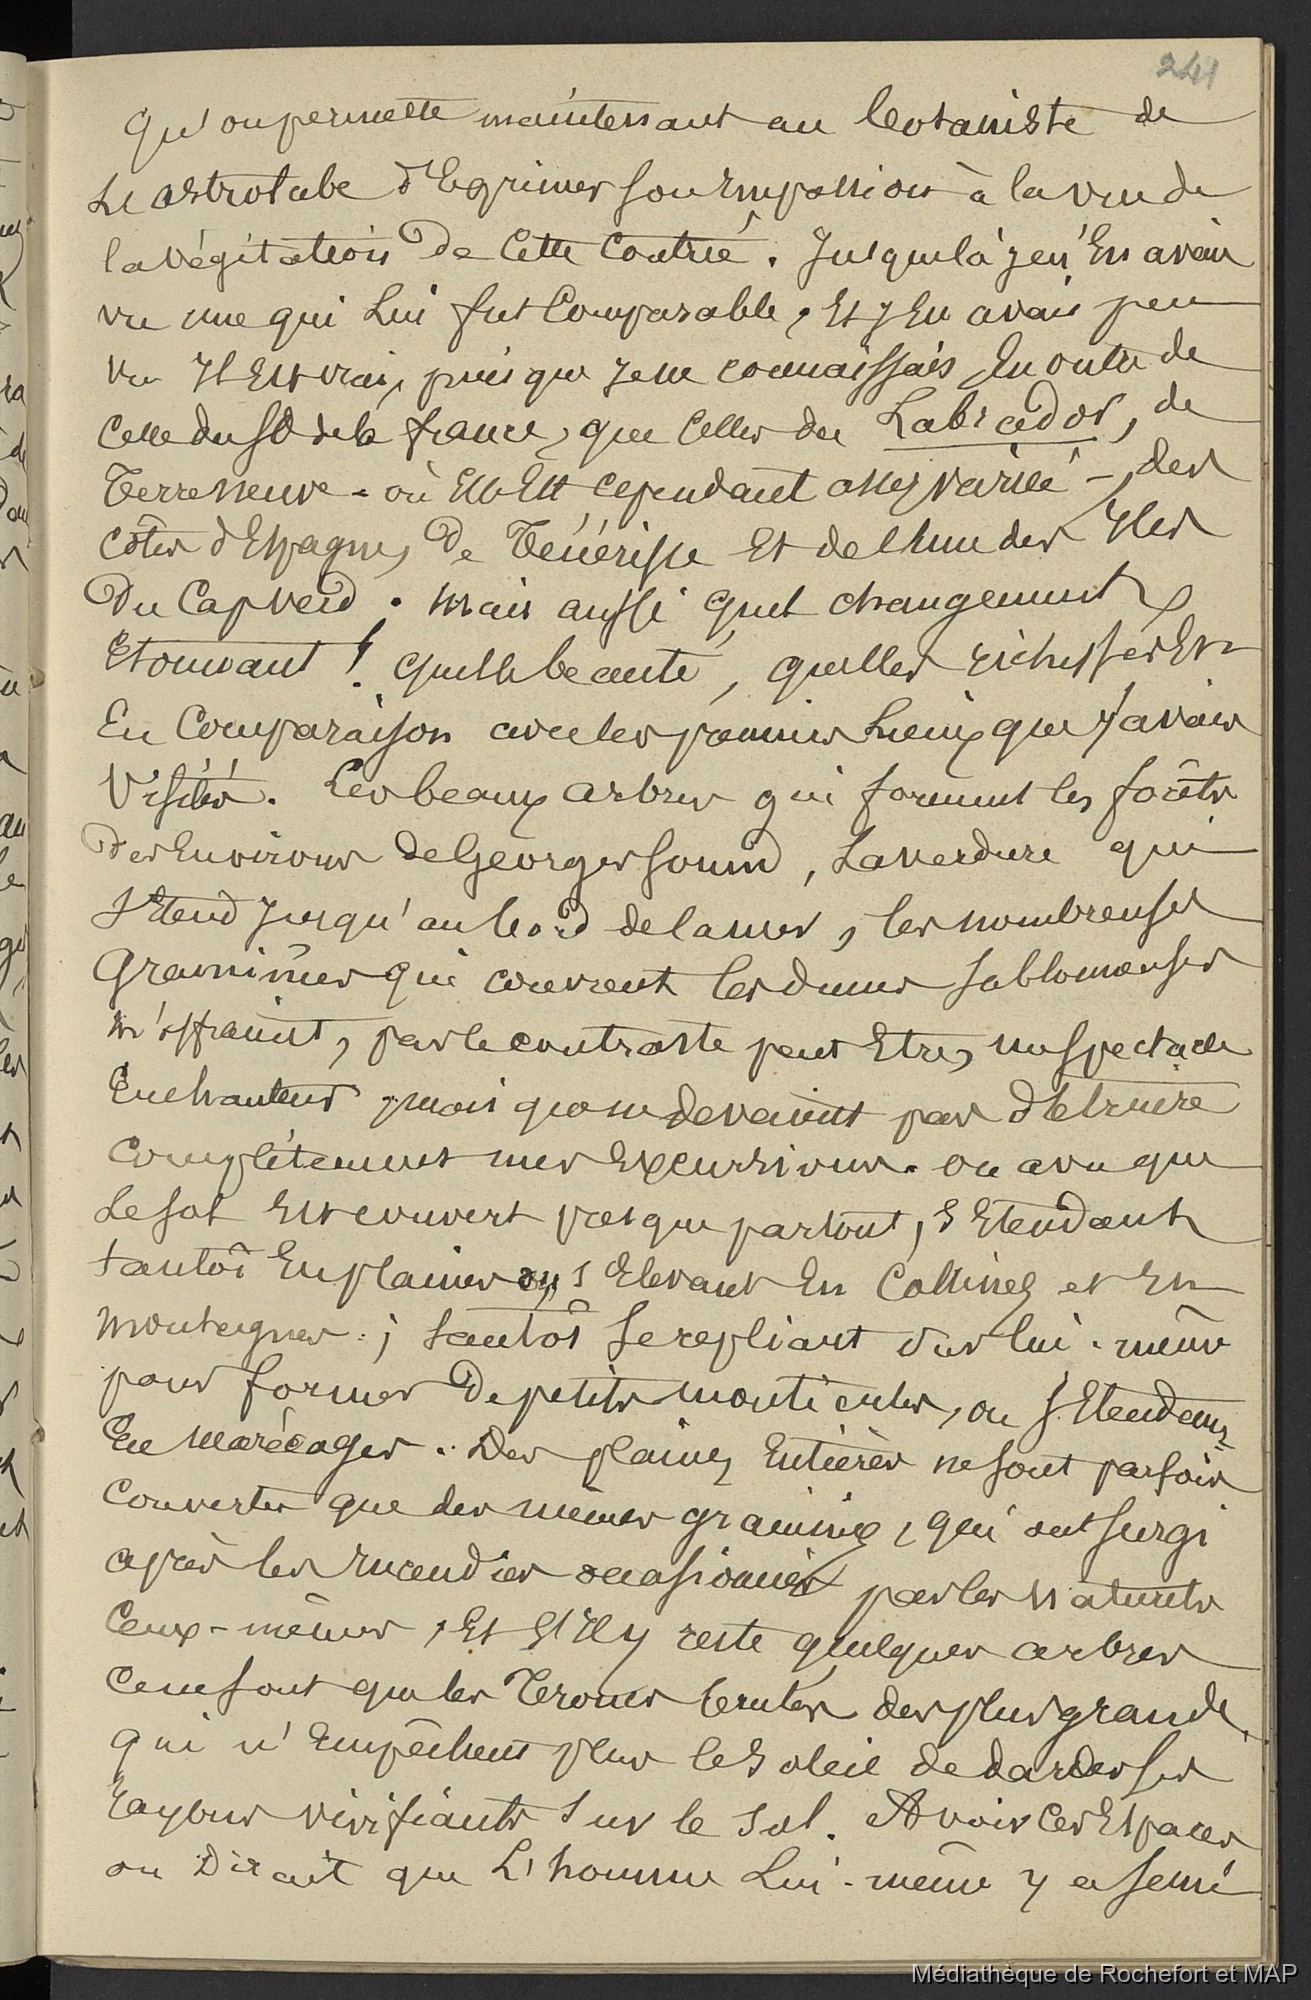 241
Qu'on permette maintenant au botaniste de
L'astrolabe d'Exprimer son Impression à la vue de
la végétation De Cette Contrée. Jusque là je n'En avais
vu une qui Lui fut Comparable, Et j'En avais peu
vu Il Est vrai, puis que je ne connaissais En outre de
Celle du SO de la france, que Celles du Labrador, de
Terre neuve - où Elle Est cependant assez variée -, des
Côtes d'Espagne, De Ténériffe Et de l'une des Iles
Du Cap Verd ; Mais aussi quel changement
Etonnant ! quelle beauté, quelles richesses En
En Comparaison avec les premiers Lieux que J'avais
Visités. Les beaux arbres qui forment les forêts
Des Environs de Georges sound, La verdure qui
S'Etend Jusqu'au bord de la mer, les nombreuses
Graminées qui couvrent les dunes sablonneuses
m'offraient, par le contraste peut Etre, un spectacle
Enchanteur, mais que ne devaient pas détruire
Complètement mes Excursions. on a vu que
Le sol Est couvert presque partout, s'Etendant
tantôt En plaines ou s'Elevant En Collines et En
montagnes ; tantôt se repliant sur lui-même
pour former De petits monticules, ou s'Etendant
En Marécages. Des plaines Entières ne sont parfois
Couvertes que des mêmes graminées, qui ont surgi
après les Incendies occasionnés par les naturels
Eux-mêmes, Et s'Il y reste quelques arbres
Ce ne sont que les Troncs brulés des plus grands
qui n'Empêchent plus le Soleil de darder ses
rayons vivifiants sur le sol. A voir Ces Espaces
on Dirait que L'homme Lui-même y a semé
Médiathèque de Rochefort et MAP